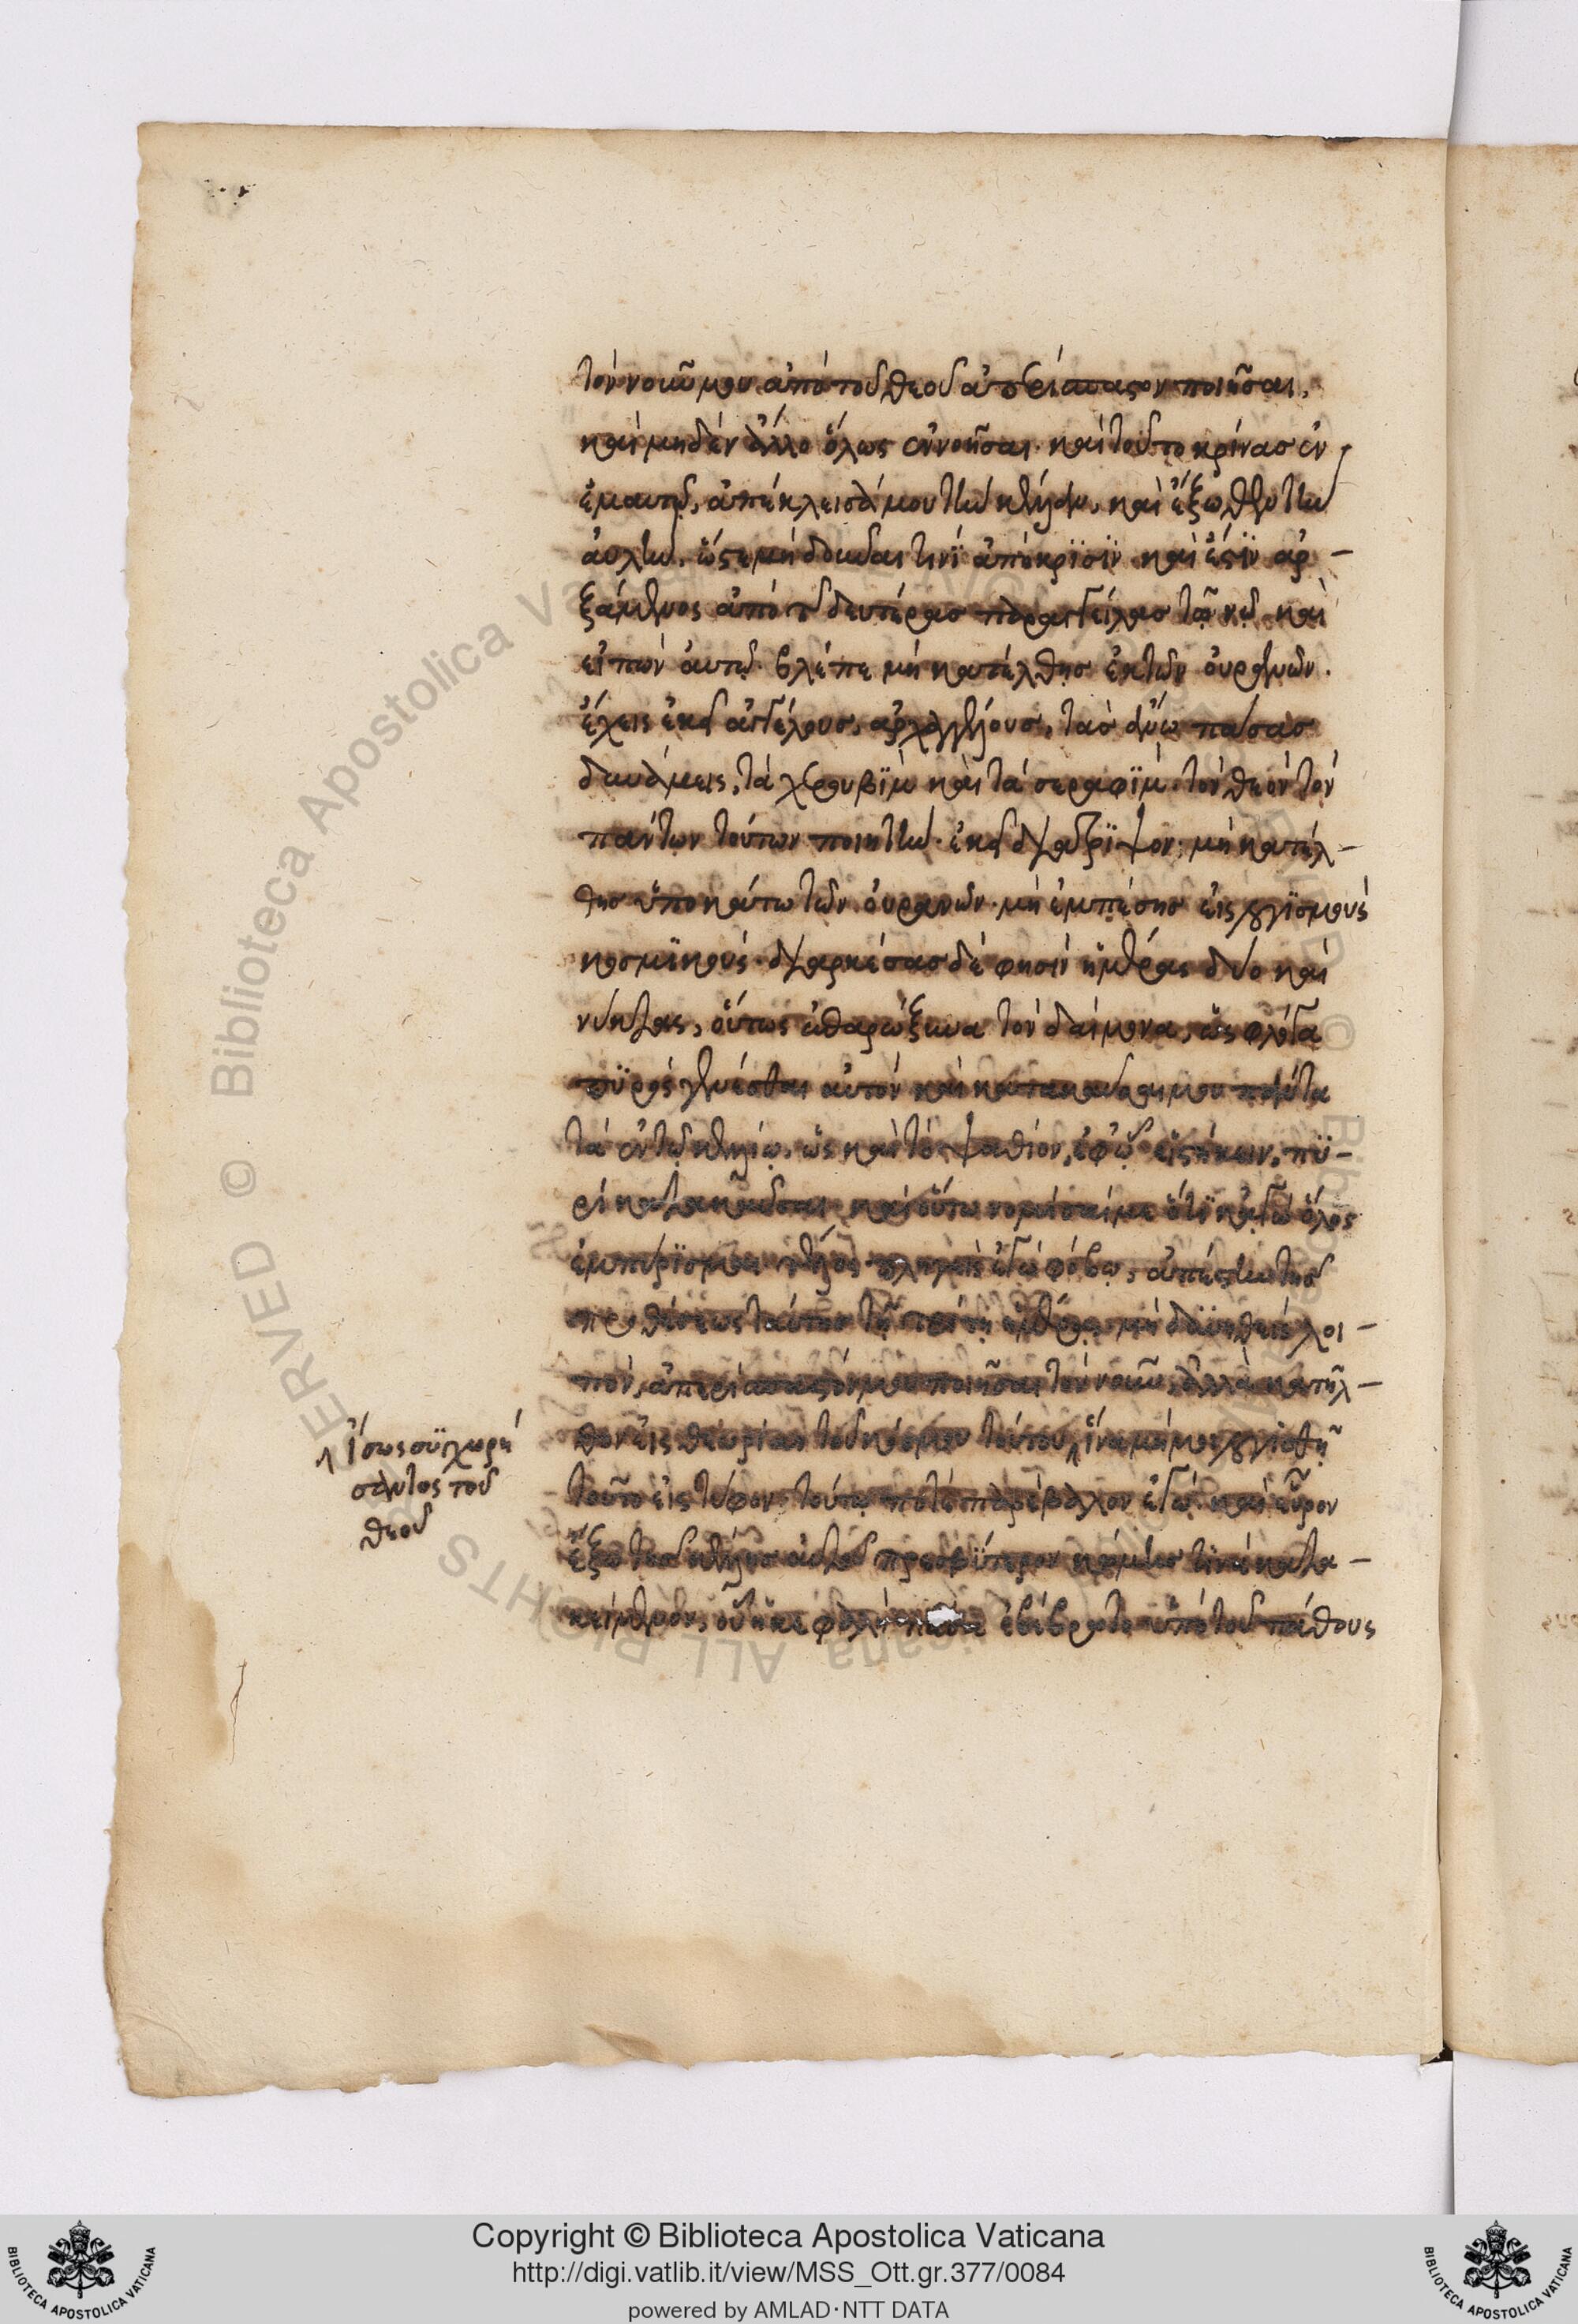 τὸν νοῦν μου ἀπὸ τοῦ θεοῦ ἀπερίσπαστον ποιῆσαι,
καὶ μηδὲν ἄλλο ὅλως ἐννοῆσαι· καὶ τοῦτο κρίνας ἐν
ἐμαυτῷ, ἀπέκλεισά μου τὴν κέλλαν, καὶ ἔξωθεν τὴν
αὐλὴν, ὥστε μὴ δοῦναι τινὶ ἀπόκρισιν· καὶ ἔστην ἀρ-
ξάμενος ἀπὸ τῆς δευτέρας παραγγείλας τῷ νῷ καὶ
εἰπὼν αὐτῷ· βλέπε μὴ κατέλθης ἐκ τῶν οὐρανῶν·
ἔχεις ἐκεῖ ἀγγέλους, ἀρχαγγέλους, τὰς ἄνω πάσας
δυνάμεις, τὰ χερουβὶμ καὶ τὰ σεραφίμ· τὸν θεὸν τὸν
πάντων τούτων ποιητὴν· ἐκεῖ διάτριψον· μὴ κατέλ-
θης ὑποκάτω τῶν οὐρανῶν· μὴ ἐμπέσης εἰς λογισμοὺς
κοσμικούς· διαρκέσας δέ φησιν ἡμέρας δύο καὶ
νύκτας, οὕτως παρώξυνα τὸν δαίμονα, ὡς φλόγα
πυρὸς γενέσθαι αὐτὸν καὶ κατακαῦσαι μου πάντα
τὰ ἐν τῷ κελλίῳ, ὡς καὶ τὸ ψαθίον, ἐφ' ᾧ εἱστήκειν, πυ-
ρὶ κατακαῦσαι καὶ οὕτω νομίσαί με ὅτι κἀγὼ ὅλος
ἐμπρίσμαι τέλος πληγεὶς ἐγὼ φόβῳ, ἀπέστην τῆς
προθέσεως ταύτης τῇ τρίτῃ ἡμέρᾳ, μὴ δυνηθεὶς λοι-
πὸν, ἀπερίσπαστόν μου ποιῆσαι τὸν νοῦν, ἀλλὰ κατῆλ-
θον εἰς θεωρίαν τοῦ κόσμου τούτου, ἵνα μή μοι λογισθῇ
τοῦτο εἰς τύφον· τούτῳ ποτὲ παρέβαλον ἐγὼ· καὶ εὗρον
ἔξω τῆς κέλλης αὐτοῦ πρεσβύτερον κώμης τινὰ κατα-
κείμενον, οὗ ἡ κεφαλὴ πᾶσα ἐβέβρωτο ὑπὸ τοῦ πάθους
ἴσως συγχωρή
σαντος τοῦ
θεοῦ
Copyright © Biblioteca Apostolica Vaticana
http://digi.vatlib.it/view/MSS_Ott.gr.377/0084
powered by AMLAD·NTT DATA
BIBLIOTECA APOSTOLICA VATICANA
BIBLIOTECA APOSTOLICA VATICANA